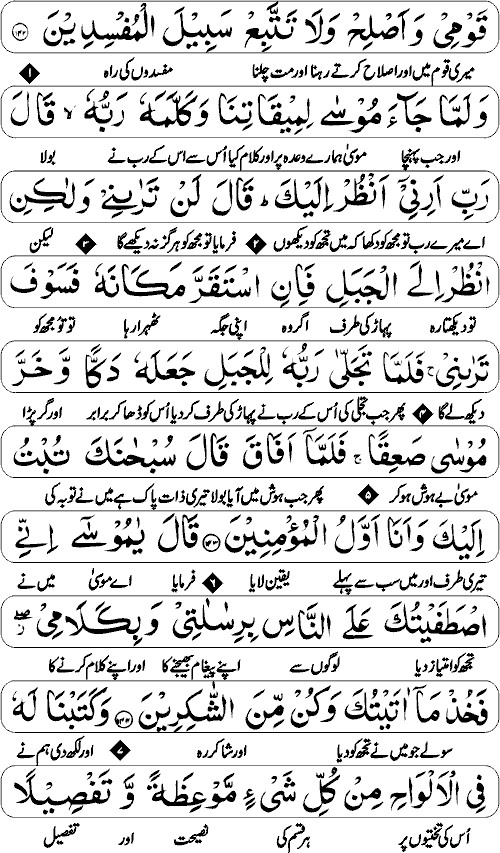 قَوْمِيْ وَاَصْلِحْ وَلَا تَتَّبِعْ سَبِيْلَ الْمُفْسِدِيْنَ ۝۱۴۲
میری قوم میں اور اصلاح کرتے رہنا اور مت چلنا مفسدوں کی راہ ۱
وَلَمَّا جَآءَ مُوْسٰى لِمِيْقَاتِنَا وَكَلَّمَهٗ رَبُّهٗ ۙ قَالَ
اور جب پہنچا موسیٰ ہمارے وعدہ پر اور کلام کیا اُس سے اس کے رب نے بولا
رَبِّ اَرِنِيْٓ اَنْظُرْ اِلَيْكَ ؕ قَالَ لَنْ تَرٰىنِيْ وَلٰكِنِ
اے میرے رب تو مجھ کو دکھا کہ میں تجھ کو دیکھوں ۲ فرمایا تو مجھ کو ہرگز نہ دیکھے گا ۳ لیکن
انْظُرْ اِلَى الْجَبَلِ فَاِنِ اسْتَقَرَّ مَكَانَهٗ فَسَوْفَ
تو دیکھتا رہ پہاڑ کی طرف اگر وہ اپنی جگہ ٹھہرا رہا تو تُو مجھ کو
تَرٰىنِيْ ۚ فَلَمَّا تَجَلّٰى رَبُّهٗ لِلْجَبَلِ جَعَلَهٗ دَكًّا وَّخَرَّ
دیکھ لے گا ۴ پھر جب تجلی کی اُس کے رب نے پہاڑ کی طرف کر دیا اُس کو ڈھا کر برابر اور گر پڑا
مُوْسٰى صَعِقًا ۚ فَلَمَّآ اَفَاقَ قَالَ سُبْحٰنَكَ تُبْتُ
موسیٰ بے ہوش ہو کر ۵ پھر جب ہوش میں آیا بولا تیری ذات پاک ہے میں نے توبہ کی
اِلَيْكَ وَاَنَا اَوَّلُ الْمُؤْمِنِيْنَ ۝۱۴۳ قَالَ يٰمُوْسٰٓى اِنِّى
تیری طرف اور میں سب سے پہلے یقین لایا ۶ فرمایا اے موسیٰ میں نے
اصْطَفَيْتُكَ عَلَى النَّاسِ بِرِسٰلٰتِيْ وَبِكَلَامِيْ ۖ
تجھ کو امتیاز دیا لوگوں سے اپنے پیغام بھیجنے کا اور اپنے کلام کرنے کا
فَخُذْ مَآ اٰتَيْتُكَ وَكُنْ مِّنَ الشّٰكِرِيْنَ ۝۱۴۴ وَكَتَبْنَا لَهٗ
سو لے جو میں نے تجھ کو دیا اور شاکر رہ ۷ اور لکھ دی ہم نے
فِى الْاَلْوَاحِ مِنْ كُلِّ شَىْءٍ مَّوْعِظَةً وَّتَفْصِيْلًا
اُس کی تختیوں پر ہر قسم کی نصیحت اور تفصیل